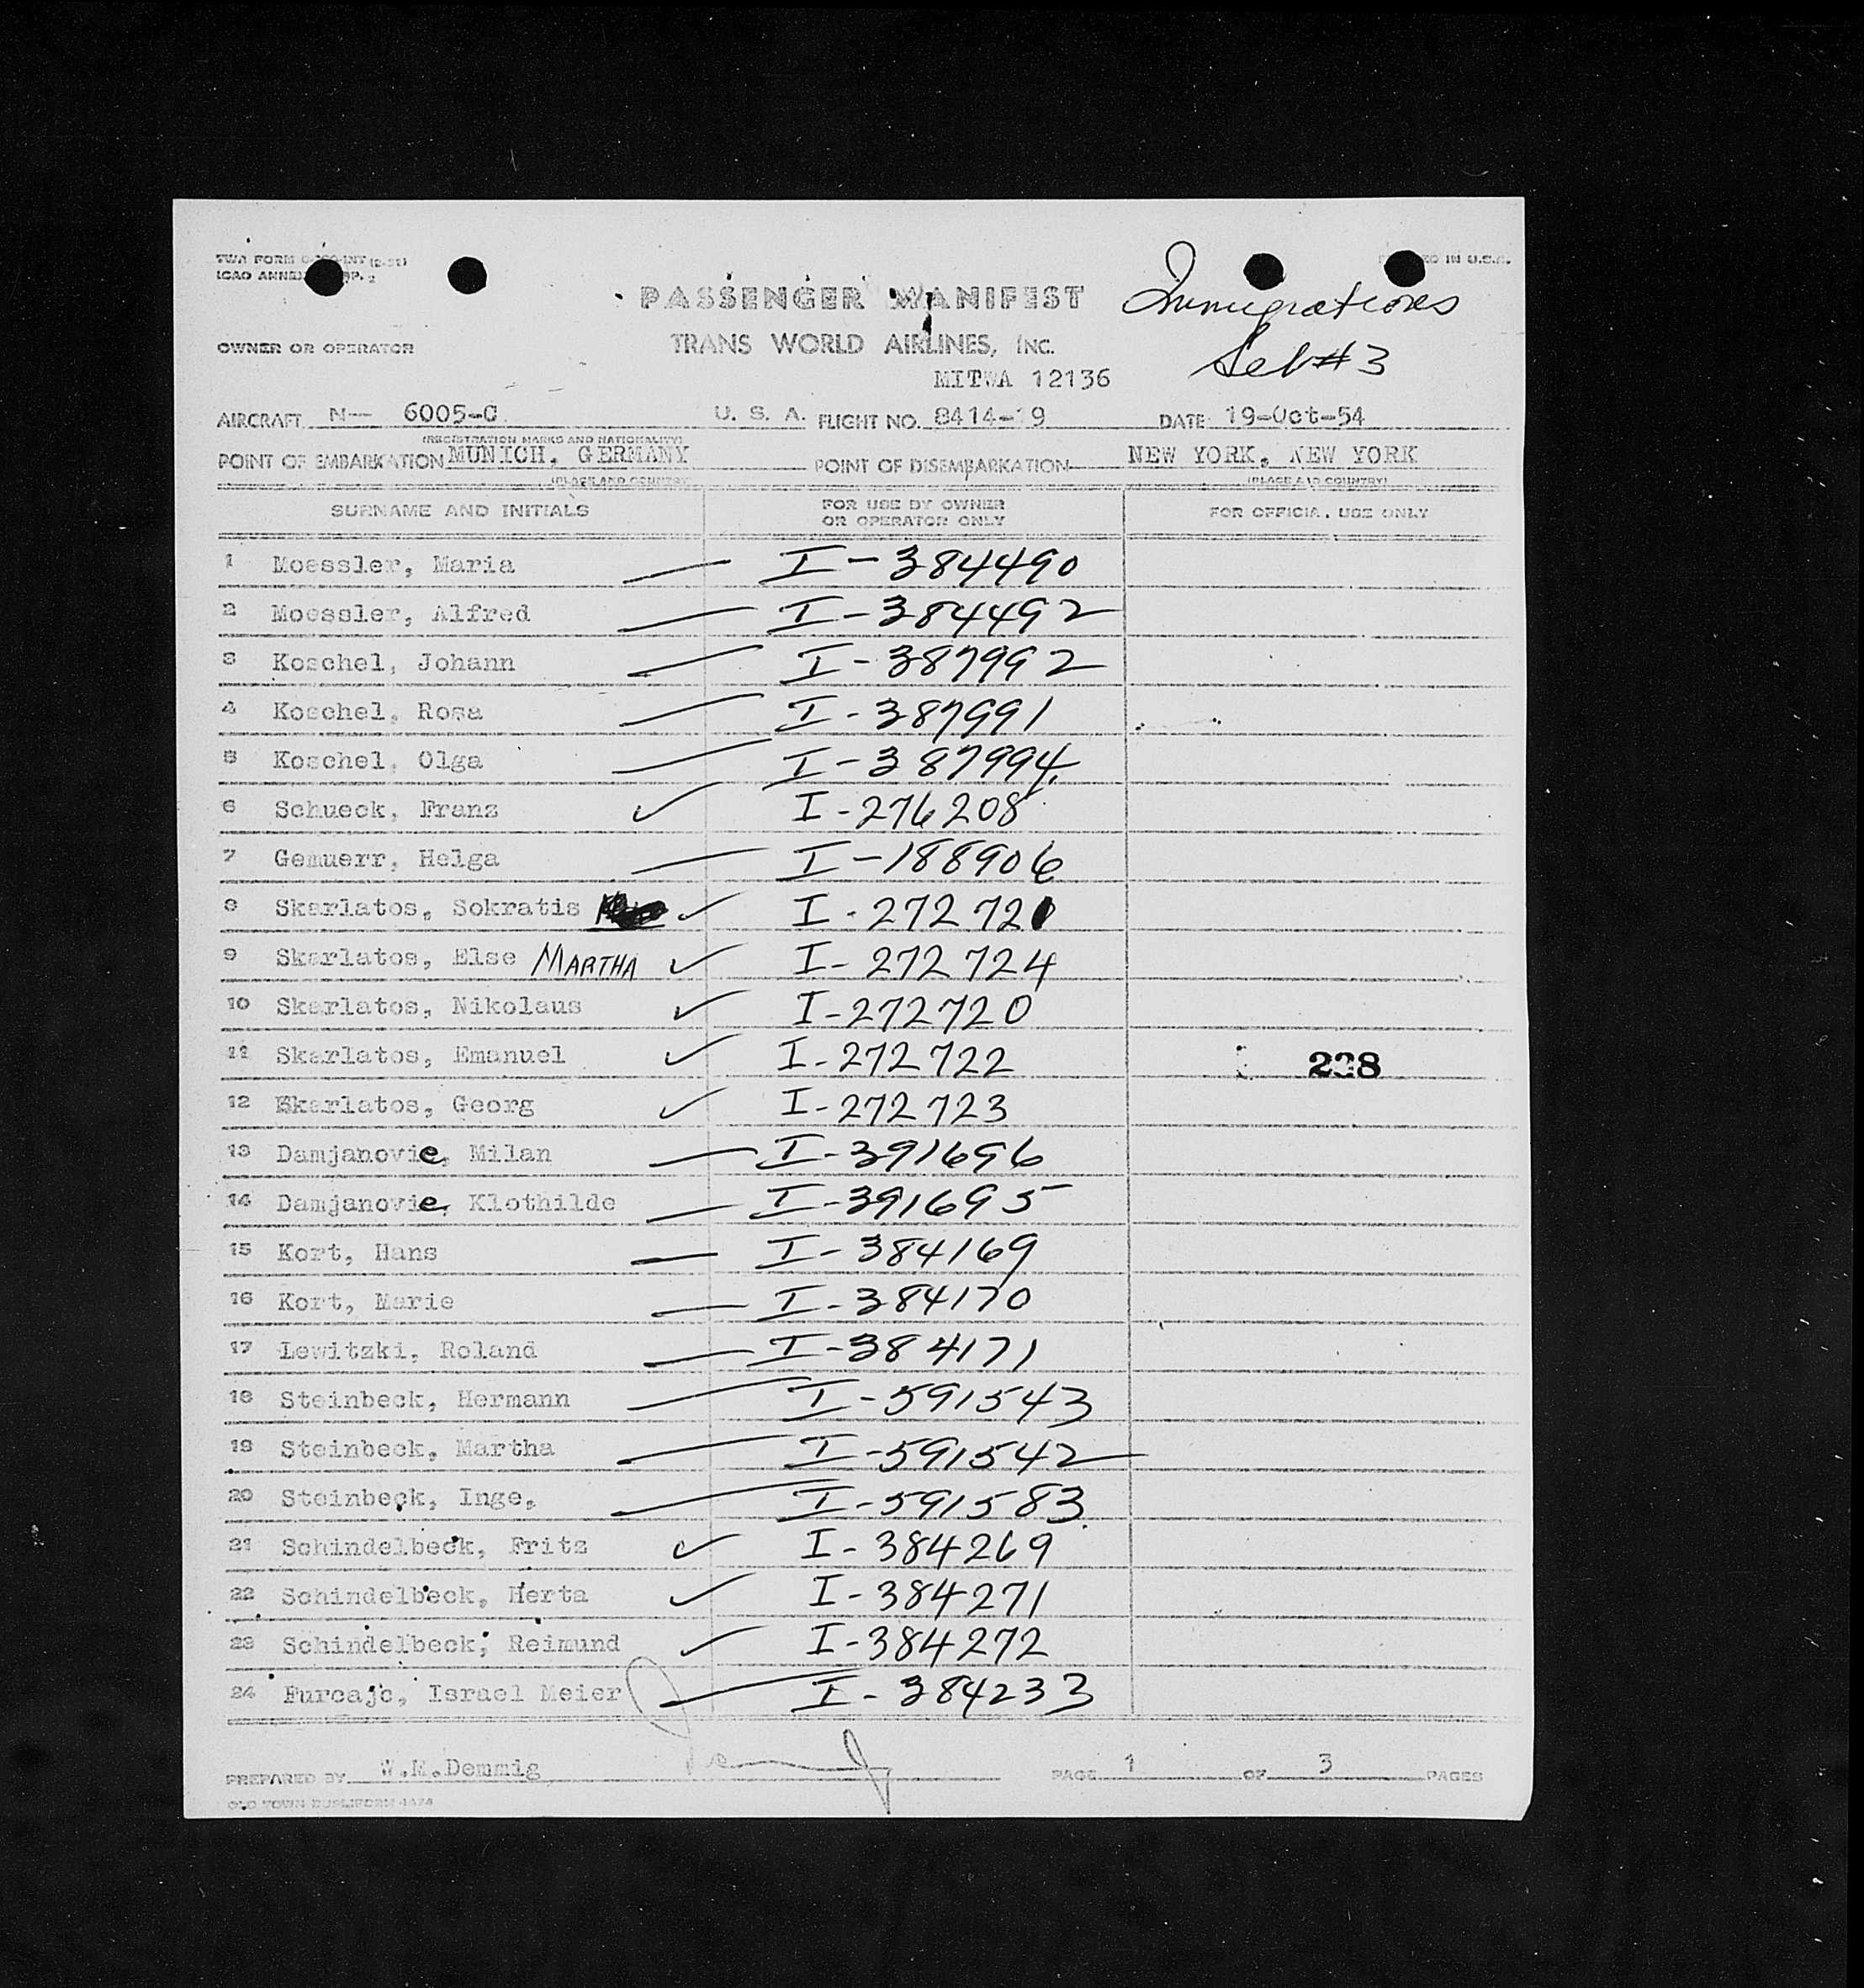 TWA FORM
ICAO ANNEX
IN U.S.A.
PASSENGER MANIFEST
Immigrations
Set #3
OWNER OR OPERATOR
TRANS WORLD AIRLINES, INC.
MITWA 12136
AIRCRAFT N-- 6005-C U. S. A. FLIGHT NO. 8414-19 DATE 19-Oct-54
(REGISTRATION MARKS AND NATIONALITY)
POINT OF EMBARKATION MUNICH, GERMANY POINT OF DISEMBARKATION NEW YORK, NEW YORK
(PLACE AND COUNTRY) (PLACE AND COUNTRY)
SURNAME AND INITIALS FOR USE BY OWNER OR OPERATOR ONLY FOR OFFICIAL USE ONLY
1 Moessler, Maria — I-384490
2 Moessler, Alfred — I-384492
3 Koschel, Johann — I-387992
4 Koschel, Rosa — I-387991
5 Koschel, Olga — I-387994
6 Schueck, Franz ✓ I-276208
7 Gemuerr, Helga — I-188906
8 Skarlatos, Sokratis ✓ I-272721
9 Skarlatos, Else MARTHA ✓ I-272724
10 Skarlatos, Nikolaus ✓ I-272720
11 Skarlatos, Emanuel ✓ I-272722 238
12 Skarlatos, Georg ✓ I-272723
13 Damjanovic, Milan — I-391696
14 Damjanovic, Klothilde — I-391695
15 Kort, Hans — I-384169
16 Kort, Marie — I-384170
17 Lewitzki, Roland — I-384171
18 Steinbeck, Hermann — I-591543
19 Steinbeck, Martha — I-591542
20 Steinbeck, Inge, — I-591583
21 Schindelbeck, Fritz ✓ I-384269
22 Schindelbeck, Herta ✓ I-384271
23 Schindelbeck, Reimund ✓ I-384272
24 Furcajc, Israel Meier — I-384233
PREPARED BY W.M.Demmig PAGE 1 OF 3 PAGES
OLD TOWN